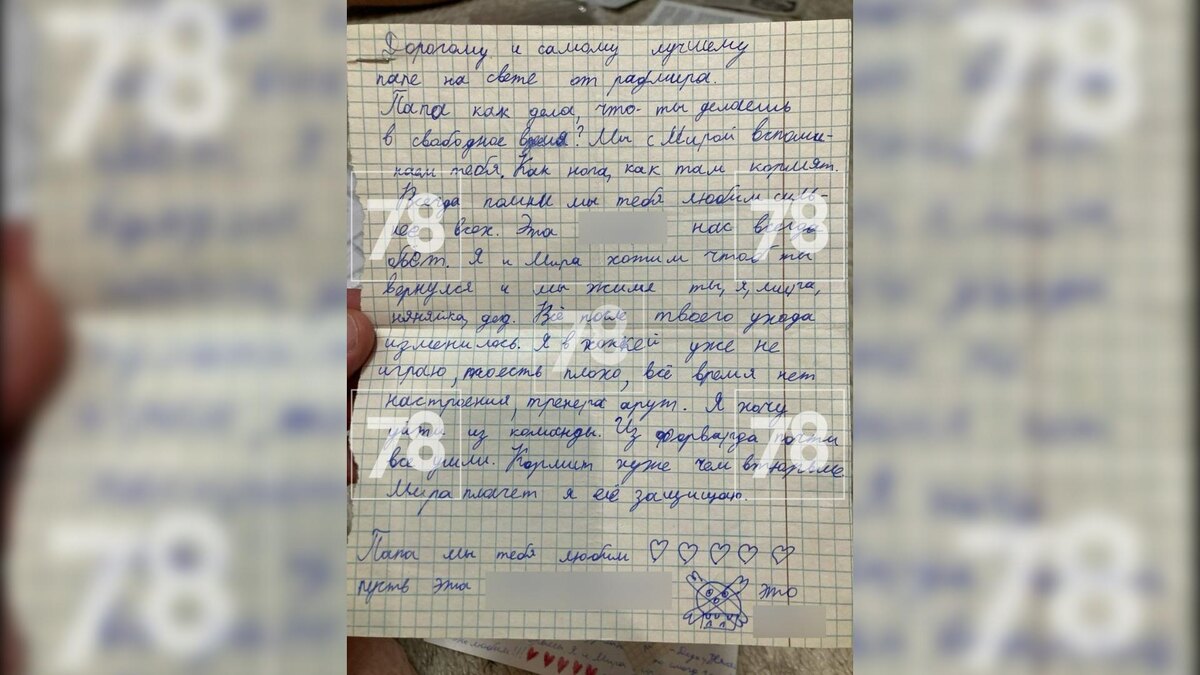 Дорогому и самому лучшему
папе на свете от радмира.
Папа как дела, что-ты делаешь
в свободное время? Мы с Мирой вспоми-
наем тебя. Как нога, как там кормят.
Всегда помни мы тебя любим силь-
нее всех. Эта нас всегда
бьёт. Я и Мира хотим чтоб ты
вернулся и мы жили ты, я, мира,
няняшка, дед. Всё после твоего ухода
изменилось. Я в хоккей уже не
играю, тоесть плохо, всё время нет
настроения, тренера орут. Я хочу
уйти из команды. Из форварда почти
все ушли. Кормит хуже чем втюрьме
Мира плачет я её защищаю.
Папа мы тебя любим
пусть эта это
78
78
78
78
78